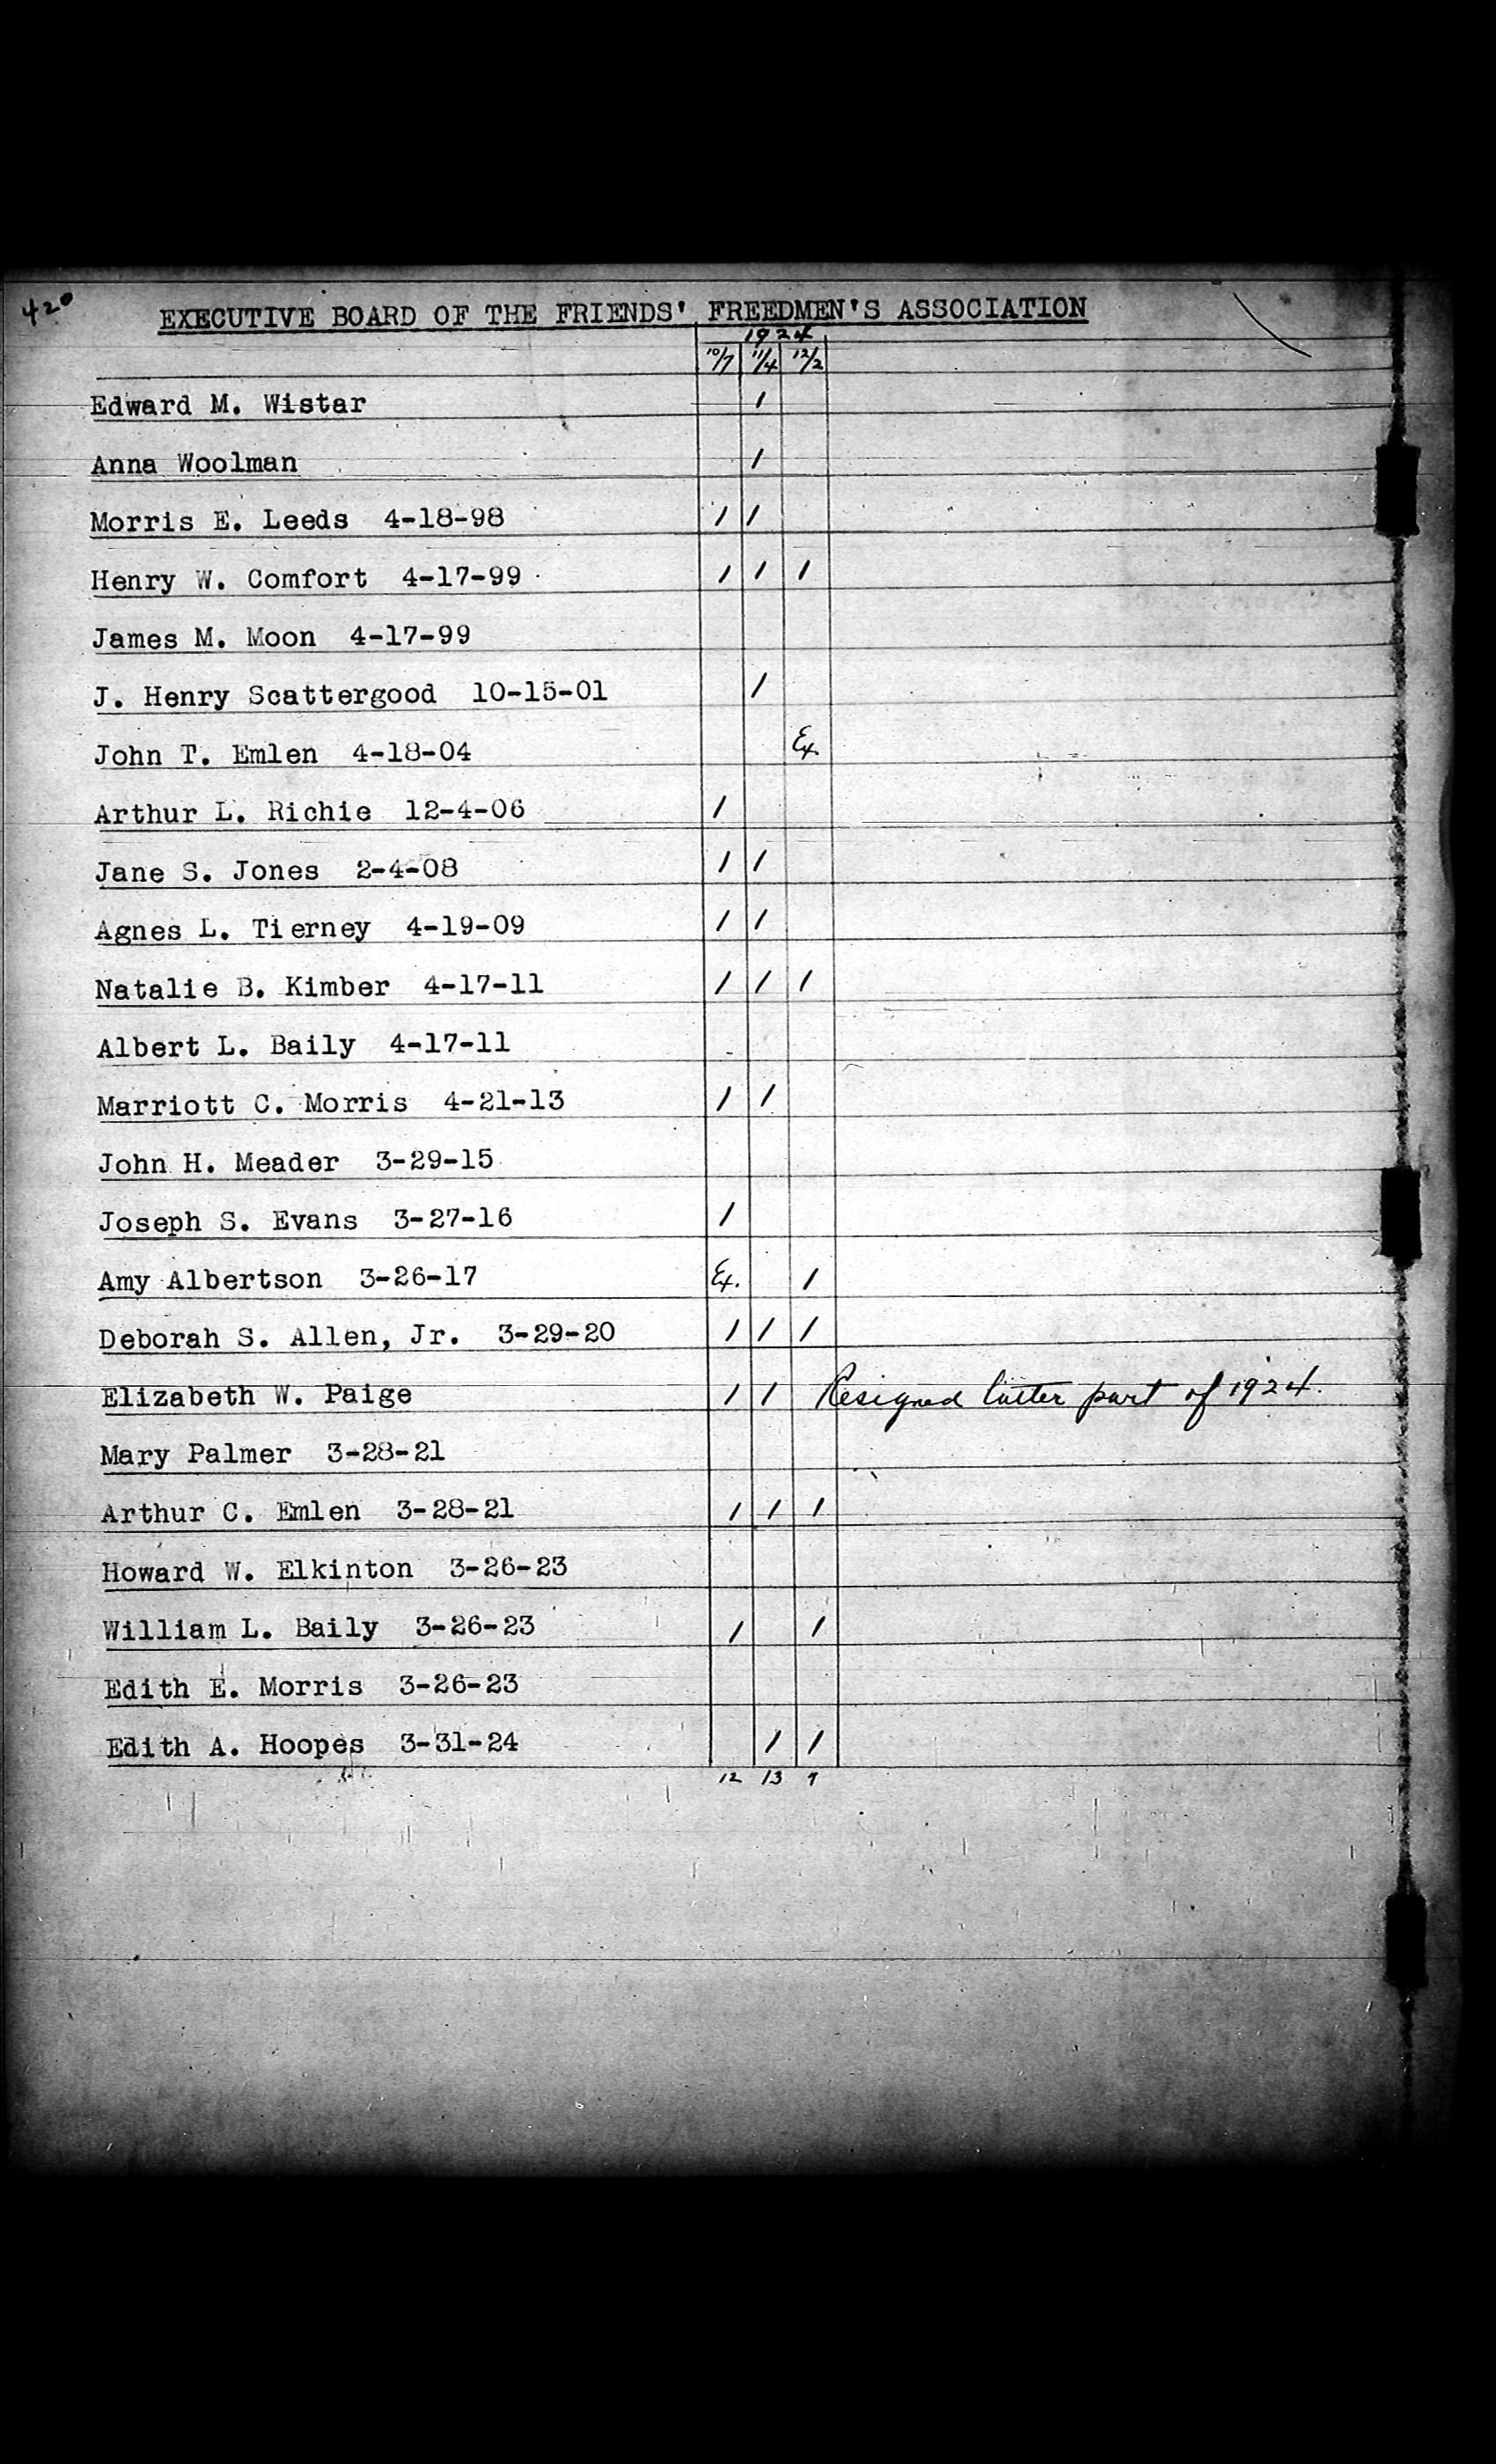 420
EXECUTIVE BOARD OF THE FRIENDS' FREEDMEN'S ASSOCIATION
1924
10/7 11/4 12/2
Edward M. Wistar /
Anna Woolman /
Morris E. Leeds 4-18-98 / /
Henry W. Comfort 4-17-99 / / /
James M. Moon 4-17-99
J. Henry Scattergood 10-15-01 /
John T. Emlen 4-18-04 Ex.
Arthur L. Richie 12-4-06 /
Jane S. Jones 2-4-08 / /
Agnes L. Tierney 4-19-09 / /
Natalie B. Kimber 4-17-11 / / /
Albert L. Baily 4-17-11
Marriott C. Morris 4-21-13 / /
John H. Meader 3-29-15
Joseph S. Evans 3-27-16 /
Amy Albertson 3-26-17 Ex. /
Deborah S. Allen, Jr. 3-29-20 / / /
Elizabeth W. Paige / / Resigned latter part of 1924.
Mary Palmer 3-28-21
Arthur C. Emlen 3-28-21 / / /
Howard W. Elkinton 3-26-23
William L. Baily 3-26-23 / /
Edith E. Morris 3-26-23
Edith A. Hoopes 3-31-24 / /
12 13